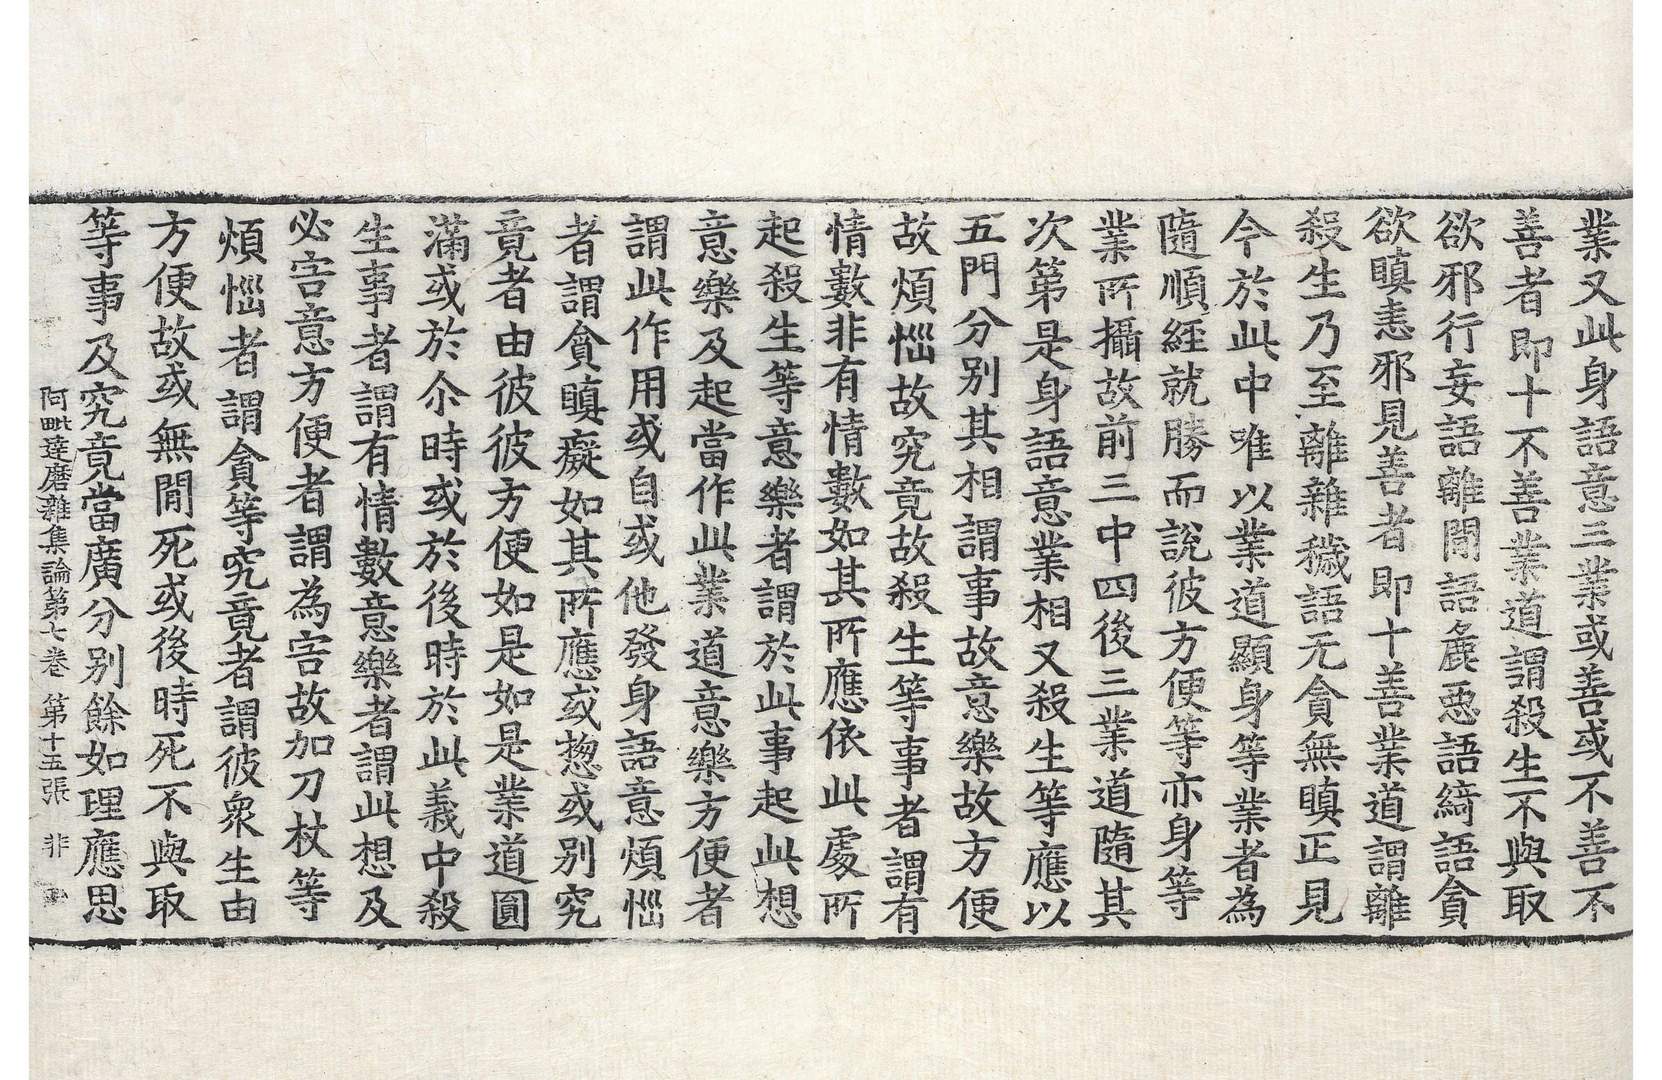 業又此身語意三業或善或不善不
善者即十不善業道謂殺生不與取
欲邪行妄語離間語麁惡語綺語貪
欲瞋恚邪見善者即十善業道謂離
殺生乃至離雜穢語无貪無瞋正見
今於此中唯以業道顯身等業者為
隨順經就勝而說彼方便等亦身等
業所攝故前三中四後三業道隨其
次第是身語意業相又殺生等應以
五門分别其相謂事故意樂故方便
故煩惱故究竟故殺生等事者謂有
情數非有情數如其所應依此處所
起殺生等意樂者謂於此事起此想
意樂及起當作此業道意樂方便者
謂此作用或自或他發身語意煩惱
者謂貪瞋癡如其所應或揔或别究
竟者由彼彼方便如是如是業道圓
滿或於尒時或於後時於此義中殺
生事者謂有情數意樂者謂此想及
必害意方便者謂為害故加刀杖等
煩惱者謂貪等究竟者謂彼衆生由
方便故或無間死或後時死不與取
等事及究竟當廣分别餘如理應思
阿毗達磨雜集論第七卷 第十五張 非